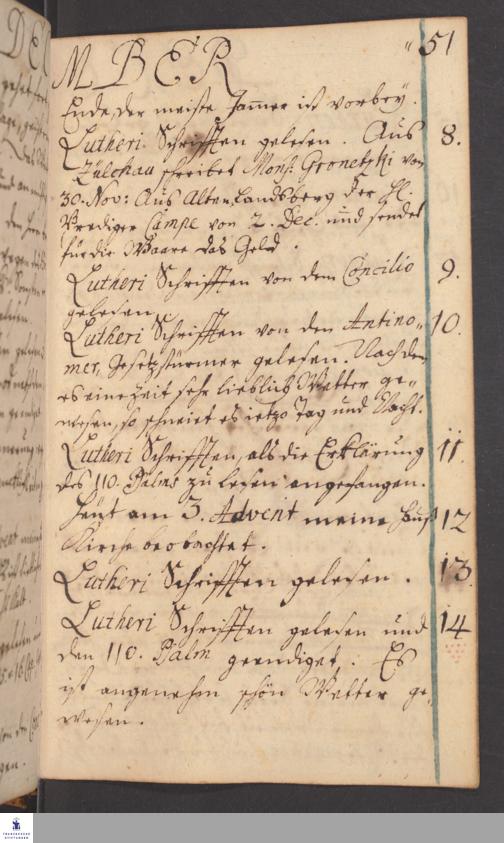 MBER " 51
Ende, der meiste Jammer ist vorbey.
Lutheri Schrifften gelesen. Aus 8.
Züllchau schreibet Mons. Gronetzki von
30. Nov: Aus Alten Landsberg der H.
Prediger Campe von 2. Dec. und sendet
für die Waare das Geld.
Lutheri Schrifften von dem Concilio 9.
gelesen.
Lutheri Schrifften von den Antino- 10.
mer, Gesetzstürmer gelesen. Nachdem
es eine Zeit sehr lieblich Wetter ge-
wesen, so schneiet es ietzo Tag und Nacht.
Lutheri Schrifften, als die Erklärung 11.
des 110. Psalms zu lesen angefangen.
Heut am 3. Advent meine Hauß 12
Kirche beobachtet.
Lutheri Schrifften gelesen. 13.
Lutheri Schrifften gelesen und 14
den 110. Psalm geendiget. Es
ist angenehm schön Wetter ge-
wesen.
FRANCKESCHE
STIFTUNGEN